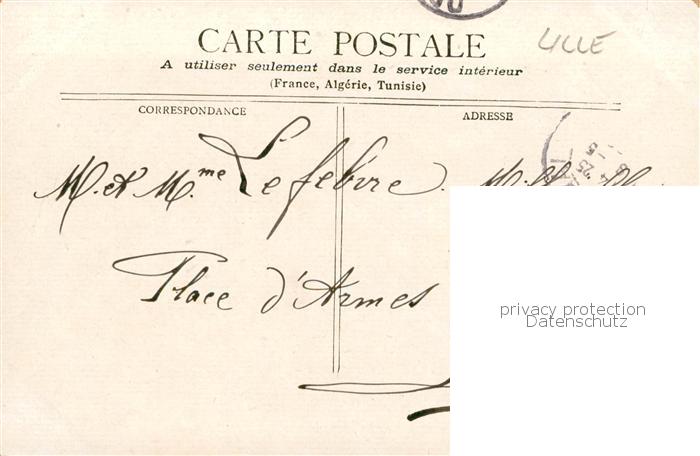 CARTE POSTALE
LILLE
A utiliser seulement dans le service intérieur
(France, Algérie, Tunisie)
CORRESPONDANCE
ADRESSE
M. et M.me Lefebvre
Place d'Armes
privacy protection
Datenschutz